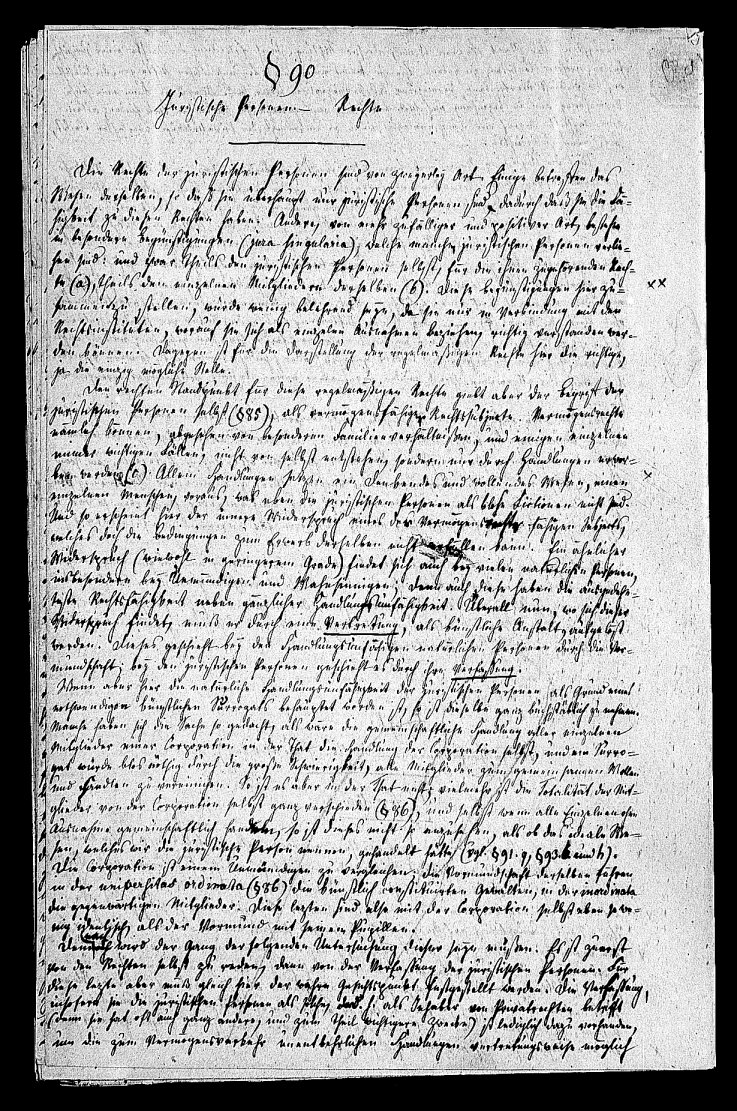 § 90
Juristische Personen — Rechte
Die Rechte der juristischen Personen sind von zweyerley Art. Einige betreffen das
Wesen derselben, so daß sie überhaupt nur juristische Personen sind, dadurch daß sie die Fä-
higkeit zu diesen Rechten haben. Andere, von mehr zufälliger und positiver Art, bestehn
in besondern Begünstigungen (jura singularia), welche manchen juristischen Personen verlie-
hen sind: und zwar theils den juristischen Personen selbst, für die ihnen zustehenden Rech-
te (a), theils den einzelnen Mitgliedern derselben (b). Diese Begünstigungen hier zu-
sammenzustellen, würde wenig belehrend seyn, da sie nur in Verbindung mit den
××
Rechtsinstituten, worauf sie sich als einzelne Ausnahmen beziehen, richtig verstanden wer-
den können. Dagegen ist für die Darstellung der regelmäßigen Rechte hier die richtige,
ja die einzig mögliche Stelle.
Den rechten Standpunkt für diese regelmäßigen Rechte giebt aber der Begriff der
juristischen Personen selbst (§ 85), als vermögensfähiger Rechtssubjecte. Vermögensrechte
nämlich können, abgesehen von besonderen Familienverhältnissen, und einigen einzelnen
minder wichtigen Fällen, nicht von selbst entstehen, sondern nur durch Handlungen erwor-
ben werden (c). Allein Handlungen setzen ein denkendes und wollendes Wesen, einen
×
einzelnen Menschen, voraus, was eben die juristischen Personen als bloße Fictionen nicht sind.
Und so erscheint hier der innere Widerspruch eines des Vermögens fähigen Subjects,
welches doch die Bedingungen zum Erwerb desselben nicht erfüllen kann. Ein ähnlicher
Widerspruch (wiewohl in geringerem Grade) findet sich auch bey vielen natürlichen Personen,
insbesondere bey Unmündigen und Wahnsinnigen; denn auch diese haben die ausgedehn-
teste Rechtsfähigkeit neben gänzlicher Handlungsunfähigkeit. Überall nun, wo sich dieser
Widerspruch findet, muß er durch eine Vertretung, als künstliche Anstalt, aufgelöst
werden. Dieses geschieht bey den handlungsunfähigen natürlichen Personen durch die Vor-
mundschaft; bey den juristischen Personen geschieht es durch ihre Verfassung.
Wenn aber hier die natürliche Handlungsunfähigkeit der juristischen Personen als Grund eines
nothwendigen künstlichen Surrogats behauptet worden ist, so ist dieselbe ganz buchstäblich zu nehmen.
Manche haben sich die Sache so gedacht, als wäre die gemeinschaftliche Handlung aller einzelnen
Mitglieder einer Corporation in der That die Handlung der Corporation selbst, und ein Surro-
gat würde blos nöthig durch die große Schwierigkeit, alle Mitglieder zum gemeinsamen Wollen
und Handlen zu vereinigen. So ist es aber in der That nicht, vielmehr ist die Totalität der Mit-
glieder von der Corporation selbst ganz verschieden (§ 86), und selbst wenn alle Einzelnen ohne
Ausnahme gemeinschaftlich handeln, so ist dieses nicht so anzusehen, als ob das ideale We-
sen, welches wir die juristische Person nennen, gehandelt hätte (vgl. § 91. q, § 93. b und h).
Die Corporation ist einem Unmündigen zu vergleichen; die Vormundschaft derselben führen
in der universitas ordinata (§ 86) die künstlich constituirten Gewalten, in der inordinata
die gegenwärtigen Mitglieder. Diese letzten sind also mit der Corporation selbst eben so we-
nig identisch, als der Vormund mit seinem Pupillen.
Demnach wird der Gang der folgenden Untersuchung dieser seyn müssen. Es ist zuerst
von den Rechten selbst zu reden, dann von der Verfassung der juristischen Personen. Für
diese letzte aber muß gleich hier der wahre Gesichtspunkt festgestellt werden. Die Verfassung,
insofern sie die juristischen Personen als solche, d. h. als Inhaber von Privatrechten betrifft
(denn sie hat oft auch ganz andere, und zum Theil wichtigere Zwecke) ist lediglich dazu vorhanden,
um die zum Vermögensverkehr unentbehrlichen Handlungen vertretungsweise möglich